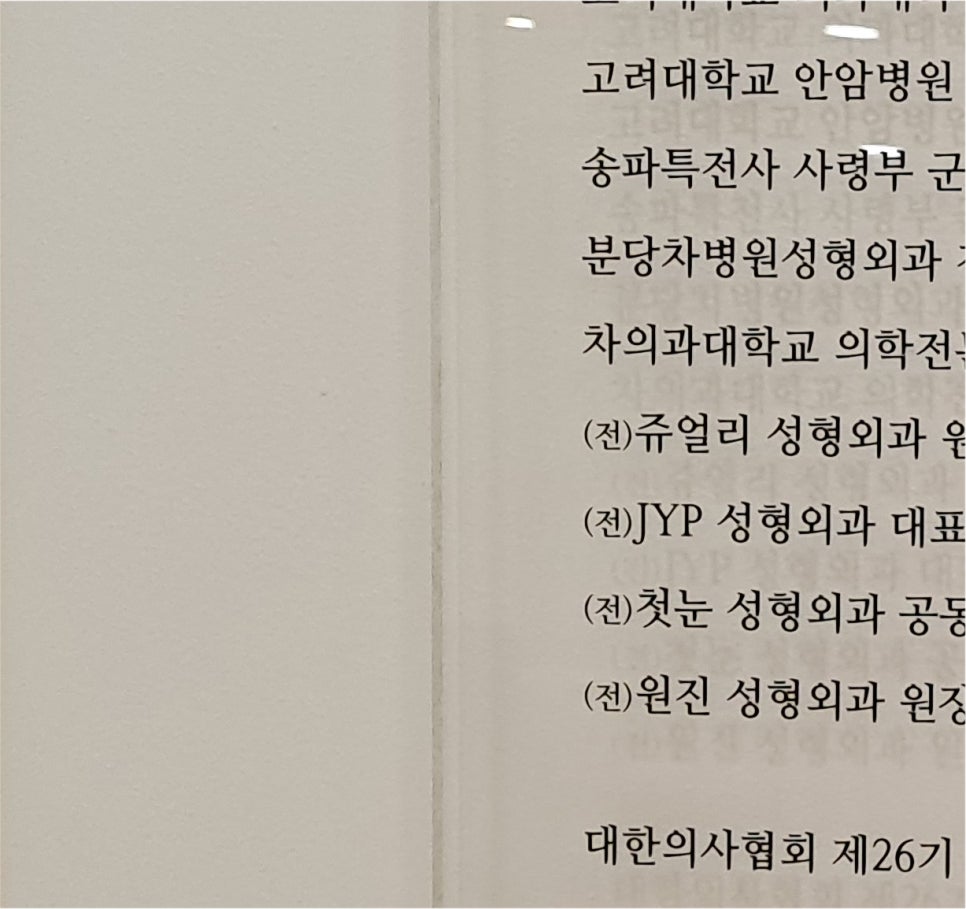 고려대학교 안암병원
송파특전사 사령부 군
분당차병원성형외과
차의과대학교 의학전
(전)쥬얼리 성형외과 원
(전)JYP 성형외과 대표
(전)첫눈 성형외과 공동
(전)원진 성형외과 원장
대한의사협회 제26기